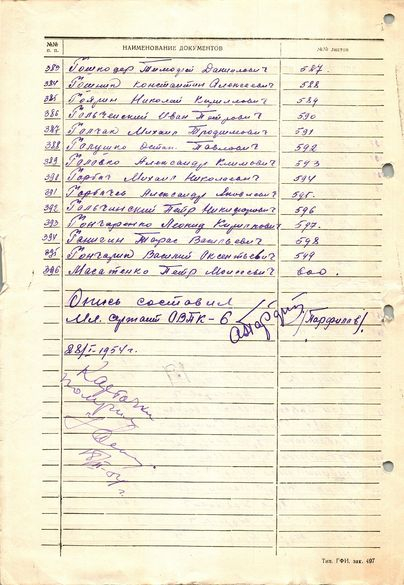 №№ п. п. НАИМЕНОВАНИЕ ДОКУМЕНТОВ №№ листов
383 Гошкодер Тимофей Данилович 587.
384 Гошнин Константин Алексеевич 588
385 Гойдин Николай Кириллович 589
386 Гольченский Иван Петрович 590
387 Гапчак Михаил Трофимович 591
388 Галушко Остап Павлович 592
389 Головко Александр Климович 593
390 Горбат Михаил Николаевич 594
391 Горбачев Александр Яковлевич 595.
392 Гольчинский Петр Никифорович 596
393 Гончаренко Леонид Кириллович 597.
394 Тарас Васильевич 598
395 Гончарик Василий Оксентьевич 599
396 Масатенко Петр Моисеевич 600.
Опись составил
Мл. сержант ОВТК-6 /Парфилов/.
28/I-1954 г.
Карточки
получил
Тип. ГФИ, зак. 497